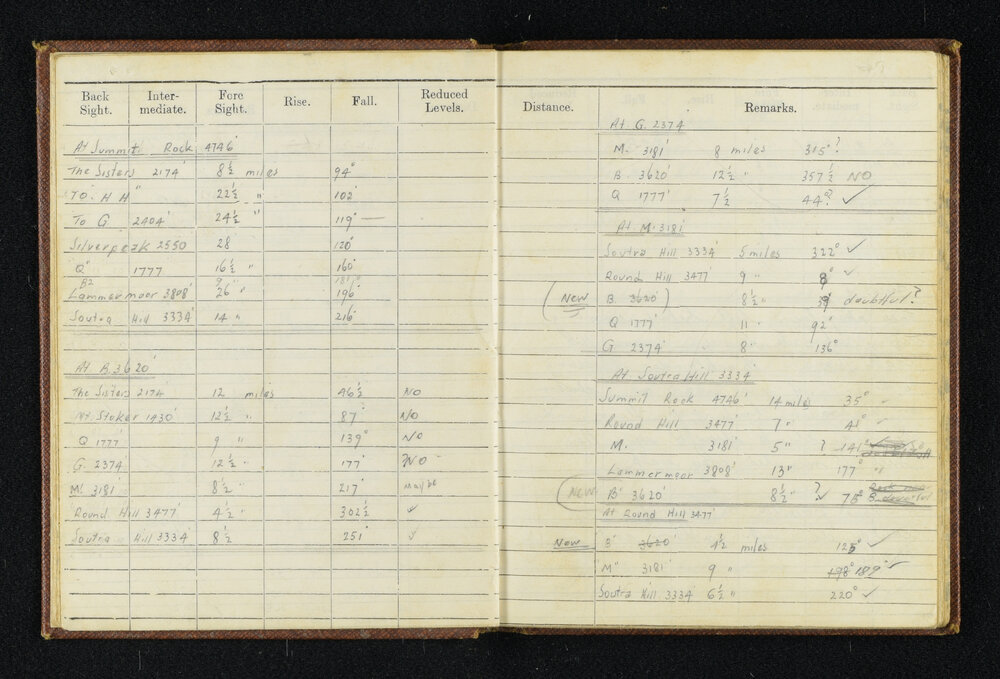 Back Sight. Inter-mediate. Fore Sight. Rise. Fall. Reduced Levels.
At Summit Rock 4746'
The Sisters 2174 8½ miles 94°
To. H H " 22½ " 102°
To G 2404' 24½ " 119° —
Silverpeak 2550 28 120°
Q° 1777 16½ " 160°
B2 9
Lammermoor 3808' 26 " 196°
Soutra Hill 3334' 14 " 216°
At B. 3620'
The Sisters 2174 12 miles 46½ NO
Mt. Stoker 1430' 12½ " 87° NO
Q 1777' 9 " 139° NO
G. 2374' 12½ " 177° ?NO
M' 3181' 8½ " 217° Maybe
Round Hill 3477' 4½ " 302½ ✓
Soutra Hill 3334' 8½ 251° ✓
Distance. Remarks.
At G. 2374
M. 3181' 8 miles 315°?
B. 3620' 12½ " 357½ NO
Q 1777' 7½ 44°? ✓
At M. 3181
Soutra Hill 3334' 5 miles 322° ✓
Round Hill 3477' 9 " 8° ✓
(New B. 3620') 8½ " doubtful?
Q 1777' 11 " 92°
G 2374' 8 136°
At Soutra Hill 3334
Summit Rock 4746' 14 miles 35° "
Round Hill 3477 7 " 41° "
M. 3181' 5 " ? 141°
Lammermoor 3808' 13 " 177° "
(New B' 3620' 8½ " ? ✓ 75°
At Round Hill 3477'
New B' 3620' 4½ miles 125° ✓
M" 3181 9 " 198° 189° ✓
Soutra Hill 3334 6½ " 220° ✓